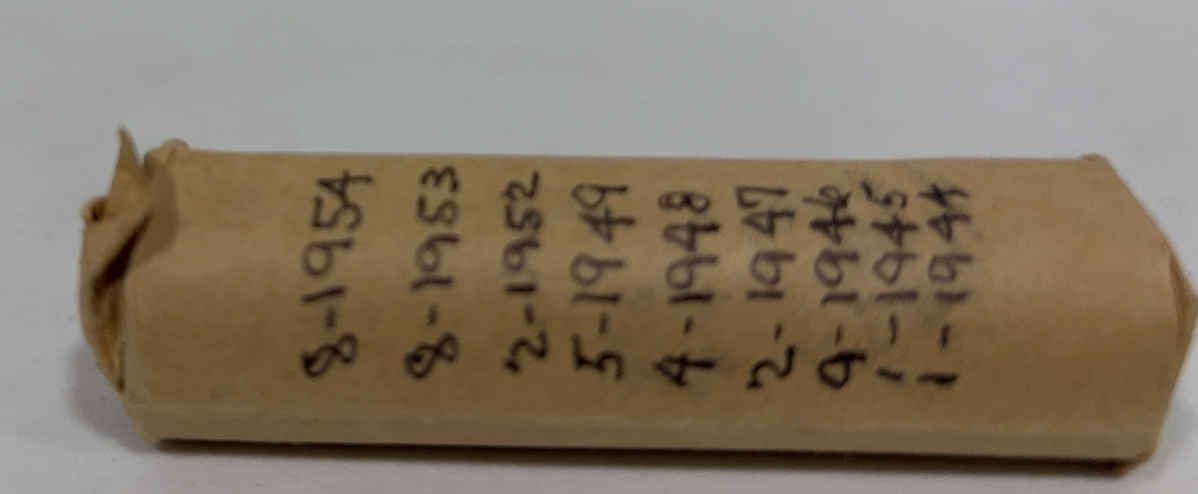 8-1954
8-1953
2-1952
5-1949
4-1948
2-1947
9-1946
1-1945
1-1944